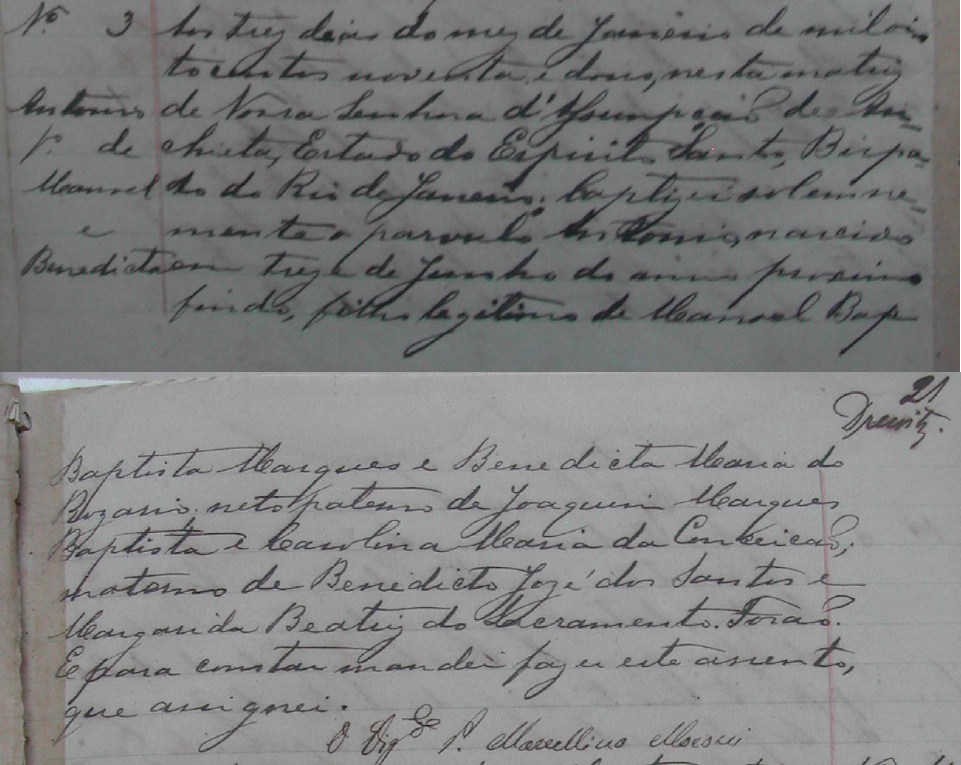 Nº 3 Aos trez dias do mez de Janeiro de mil oi-
tocentos noventa e dous, nesta matriz
Antonio de Nossa Senhora d'Assumpção de An-
f. de chieta, Estado do Espirito Santo, Bispa-
Manoel do do Rio de Janeiro; baptizei solemne-
e mente o parvulo Antonio, nascido
Benedicta em treze de Junho do anno proximo
findo, filho legitimo de Manoel Bap
21
Baptista Marques e Benedicta Maria do
Rozario. neto paterno de Joaquim Marques
Baptista e Carolina Maria da Conceicaõ;
materno de Benedicto Jozé dos Santos e
Margarida Beatriz do Sacramento. Foraõ.
E para constar mandei fazer este assento,
que assignei.
O Vigrº P. Marcellino